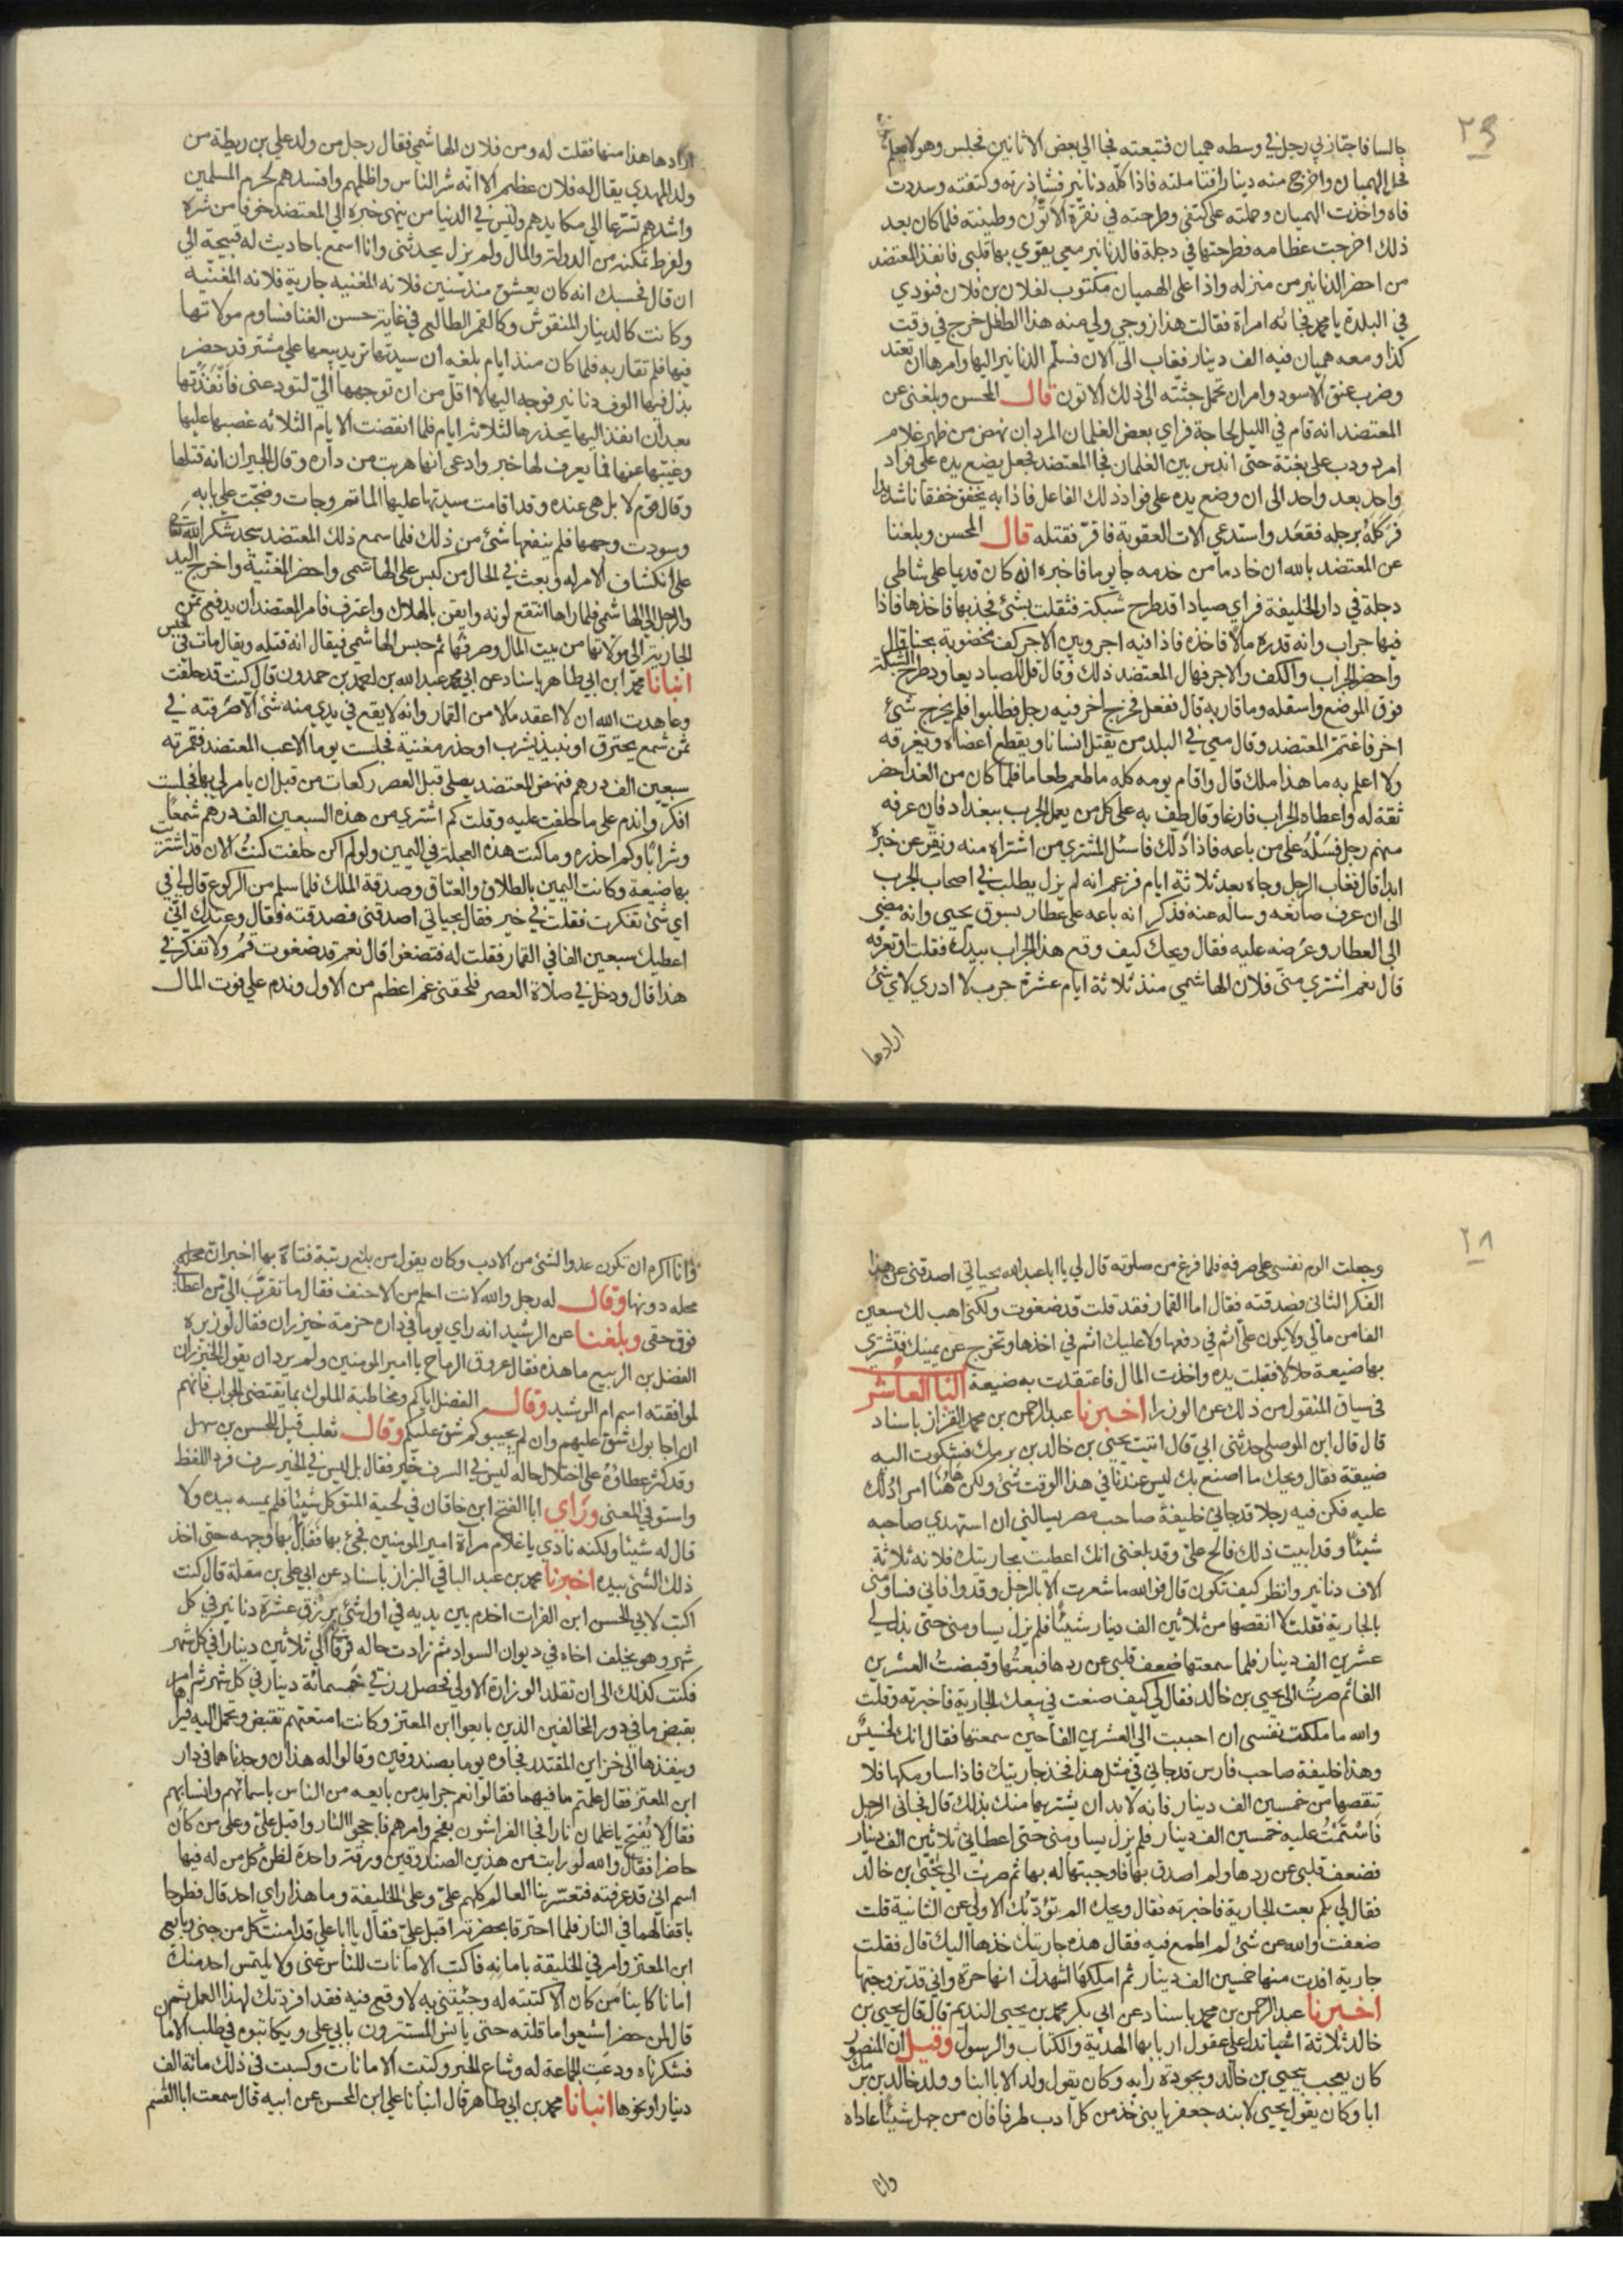 ٢٩
جالسا فاجتازني رجل في وسطه هميان فتبعته فجا الي بعض الاثانين فجلس وهو لا يعلم
فحل الهميان واخرج منه دينارا فتاملته فاذا كله دنانير فشاذرته وكتفته وسددت
فاه واخذت الهميان وحملته على كتفي وطرحته في نقرة الاتون وطينته فلما كان بعد
ذلك اخرجت عظامه فطرحتها في دجلة فالدنانير معي يقوي بها قلبي فانفذ المعتضد
من احضر الدنانير من منزله واذا على الهميان مكتوب لفلان بن فلان فنودي
في البلدة يا محمد فجاته امراة فقالت هذا زوجي ولي منه هذا الطفل خرج في وقت
كذا ومعه هميان فيه الف دينار فغاب الى الان فسلم الدنانير اليها وامرها ان تعتد
وضرب عنق الاسود وامر ان تحمل جثته الى ذلك الاتون قال المحسن وبلغني عن
المعتضد انه قام في الليل لحاجة فراي بعض الغلمان المردان نهض من ظهر غلام
امرد ودب على بغتة حتى اندس بين الغلمان فجا المعتضد فجعل يضع يده على فواد
واحد بعد واحد الى ان وضع يده على فواد ذلك الفاعل فاذا به يخفق خفقانا شديدا
فركله برجله فقعد واستدعي الات العقوبة فاقر فقتله قال المحسن وبلغنا
عن المعتضد بالله ان خادما من خدمه جا يوما فاخبره انه كان قديما على شاطي
دجلة في دار الخليفة فراي صيادا قد طرح شبكته فثقلت بشئ فجذبها فاخذها فاذا
فيها جراب وانه قدره مالا فاخذه فاذا فيه اجر وبين الاجر كف مخضوبة بحنا قال
واحضر الجراب والكف والاجر فهال المعتضد ذلك وقال قل للصياد يعاود طرح الشبكة
فوق الموضع واسفله وما قاربه قال ففعل فخرج اخر فيه رجل فطلبوا فلم يخرج شئ
اخر فاغتم المعتضد وقال معي في البلد من يقتل انسانا ويقطع اعضاه ويغرقه
ولا اعلم به ما هذا ملك قال واقام يومه كله ما طعم طعاما فلما كان من الغد احضر
ثقة له واعطاه الجراب فارغا وقال طف به على كل من يعمل الجرب ببغداد فان عرفه
منهم رجل فسله على من باعه فاذا ذلك فاسئل المشتري من اشتراه منه ونقر عن خبره
ابدا قال فغاب الرجل وجاه بعد ثلاثة ايام فزعم انه لم يزل يطلب في اصحاب الجرب
الى ان عرف صانعه وساله عنه فذكر انه باعه على عطار بسوق يحيى وانه مضي
الى العطار وعرضه عليه فقال ويحك كيف وقع هذا الجراب بيدك فقلت او تعرفه
قال نعم اشتري مني فلان الهاشمي منذ ثلاثة ايام عشرة جرب لا ادري لاي شئ
ارادها
ارادها هذا منها فقلت له ومن فلان الهاشمي فقال رجل من ولد علي بن ريطة من
ولد المهدي يقال له فلان عظيم الا انه شر الناس واظلمهم وافسدهم لحرم المسلمين
واشدهم تسرعا الي مكايدهم وليس في الدنيا من ينهى خبره الي المعتضد خوفا من شره
ولفرط تمكنه من الدولة والمال ولم يزل يحدثني وانا اسمع باحاديث له قبيحة الي
ان قال فحسبك انه كان يعشق منذ سنين فلانه المغنيه جارية فلانه المغنيه
وكانت كالدينار المنقوش وكالقمر الطالبى في غاية حسن الغنا فساوم مولاتها
فيها فلم تقاربه فلما كان منذ ايام بلغه ان سيدتها تريد بيعها علي مشتر قد حضر
بذل فيها الوف دنانير فوجه اليها لا اقل من ان توجهها الي لتودعني فانفذتها
بعد ان انفذ اليها بجذرها لثلاثة ايام فلما انقضت الايام الثلاثه غصبها عليها
وغيبها عنها فما يعرف لها خبر وادعى انها هربت من داره وقال الجيران انه قتلها
وقال قوم لا بل هى عنده وقد اقامت سيدتها عليها الماتم وجات وضجت علي بابه
وسودت وجهها فلم ينفعها شئ من ذلك فلما سمع ذلك المعتضد سجد شكرا لله تعالى
على انكشاف الامر له وبعث في الحال من كبس على الهاشمى واحضر المغنية واخرج اليد
والرجل الي الهاشمي فلما راها انتقع لونه وايقن بالهلاك واعترف فامر المعتضد ان يدفع ثمن
الجارية الي مولاتها من بيت المال وصرفها ثم حبس الهاشمي فيقال انه قتله ويقال مات في الحبس
انبانا محمد ابن ابي طاهر باسناد عن ابي محمد عبد الله بن احمد بن حمدون قال كنت قد حلفت
وعاهدت الله ان لا اعقد مالا من القمار وانه لا يقع في يدي منه شئ الا صرفته في
ثمن شمع يحترق او نبيذ يشرب او حذر مغنية فجلست يوما الاعب المعتضد فقمرته
سبعين الف درهم فنهض المعتضد يصلى قبل العصر ركعات من قبل ان يامر لي بها فجلست
افكر واندم على ما حلفت عليه وقلت كم اشتري من هذه السبعين الف درهم شمعا
وشرابا وكم احذره وما كنت هذه العجلة في اليمين ولو لم اكن حلفت كنت الان قد اشتريت
بها ضيعة وكانت اليمين بالطلاق والعتاق وصدقة الملك فلما سلم من الركوع قال لي في
اي شئ تفكرت فقلت في خير فقال بحياتي اصدقني فصدقته فقال وعندك اني
اعطيك سبعين الفا في القمار فقلت له فتضغوا قال نعم قد ضغوت قم ولا تفكر في
هذا قال ودخل في صلاة العصر فلحقني غم اعظم من الاول وندم علي فوت المال
٢٨
وجعلت الوم نفسى على صرفه فلما فرغ من صلوته قال لي يا ابا عبد الله بحياتي اصدقني عن هذا
الفكر الثاني فصدقته فقال اما القمار فقد قلت قد ضغوت ولكني اهب لك سبعين
الفا من مالي ولا يكون علي اثم في دفعها ولا عليك اثم في اخذها وتخرج عن يمينك فتشتري
بها ضيعة حلالا فقبلت يده واخذت المال فاعتقدت به ضيعة الباب العاشر
في سياق المنقول من ذلك عن الوزرا اخبرنا عبد الرحمن بن محمد القزاز باسناد
قال قال ابن الموصلي حدثني ابي قال اتيت يحيى بن خالد بن برمك فشكوت اليه
ضيقة فقال ويحك ما اصنع بك ليس عندنا في هذا الوقت شئ ولكن هاهنا امر ادلك
عليه فكن فيه رجلا قد جاني خليفة صاحب مصر يسالني ان استهدي صاحبه
شيئا وقد ابيت ذلك فالح علي وقد بلغني انك اعطيت بجاريتك فلانه ثلاثة
الاف دنانير وانظر كيف تكون قال فوالله ما شعرت الا بالرجل وقد وافاني فساومني
بالجارية فقلت لا انقصها من ثلاثين الف دينار شيئا فلم يزل يساومني حتى بذل لي
عشري الف دينار فلما سمعتها ضعف قلبي عن ردها فبعتها وقبضت العشرين
الفا ثم صرت الى يحيى بن خالد فقال لي كيف صنعت في بيعك الجارية فاخبرته وقلت
والله ما ملكت نفسي ان احببت الي العشري الفا حين سمعتها فقال انك لخسيس
وهذا خليفة صاحب فارس قد جاني في مثل هذا فخذ جاريتك فاذا ساومكها فلا
تنقصها من خمسين الف دينار فانه لا بد ان يشتريها منك بذلك قال فجاني الرجل
فاستمت عليه خمسين الف دينار فلم يزل يساومني حتى اعطاني ثلاثين الف دينار
فضعف قلبي عن ردها ولم اصدق بها فاوجبتها له بها ثم صرت الي يحيى بن خالد
فقال لي بكم بعت الجارية فاخبرته فقال ويحك الم تؤدبك الاولي عن الثانية قلت
ضعفت والله عن شئ لم اطمع فيه فقال هذه جاريتك خذها اليك قال فقلت
جارية افدت منها خمسين الف دينار ثم املكها اشهدك انها حرة واني قد تزوجتها
اخبرنا عبد الرحمن بن محمد باسناد عن ابي بكر محمد بن يحيى النديم قال قال يحيى بن
خالد ثلاثة اشيا تدل على عقول اربابها الهدية والكتاب والرسول وقيل ان المنصور
كان يعجب بيحيي بن خالد وبجودة رايه وكان يقول ولد الابا ابنا وولد خالد بن برمك
ابا وكان يقول يحيى لابنه جعفر يا بني خذ من كل ادب طرفا فان من جهل شيئا عاداه
وانا
وانا اكره ان تكون عدوا لشئ من الادب وكان يقول من بلغ رتبة فتاه بها اخبر ان محله
محله دونها وقال له رجل والله لانت احلم من الاحنف فقال ما تقرب الي من اعطاني
فوق حقي وبلغنا عن الرشيد انه راي يوما في داره حزمة خيزران فقال لوزيره
الفضل بن الربيع ما هذه فقال عروق الرماح يا امير المومنين ولم يرد ان يقول الخيزران
لموافقته اسم ام الرشيد وقال الفضل اياكم ومخاطبة الملوك بما يقتضي الجواب فانهم
ان اجابوك شق عليهم وان لم يجيبوكم شق عليكم وقال ثعلب قيل للحسن بن سهل
وقد كثر عطاؤه على اختلال حاله ليس في السرف خير فقال بل ليس في الخير سرف فرد اللفظ
واستوفي المعنى وراي ابا الفتح ابن خاقان في لحية المتوكل شيئا فلم يمسه بيده ولا
قال له شيئا ولكنه نادي يا غلام مراة امير المومنين فجئ بها فقابل بها وجهه حتى اخذ
ذلك الشئ بيده اخبرنا محمد بن عبد الباقي البزاز باسناد عن ابي علي بن مقلة قال كنت
اكتب لابي الحسن ابن الفرات اخدم بين يديه في اول شئ برزق عشرة دنانير في كل
شهر وهو يخلف اخاه في ديوان السواد ثم زادت حاله فرقاني الي ثلاثين دينارا في كل شهر
فكنت كذلك الى ان تقلد الوزارة الاولي فحصل رزقي خمسمائة دينار في كل شهر ثم امر
بقبض ما في دور المخالفين الذين بايعوا ابن المعتز وكانت امتعتهم تقبض وتحمل اليه فيراها
وينفذها الي خزاين المقتدر فجاوه يوما بصندوقين وقالوا له هذان وجدناهما في دار
ابن المعتز فقال علمتم ما فيهما فقالوا نعم جرايد من بايعه من الناس باسمائهم وانسابهم
فقال لا تفتح يا غلمان نارا فجا الفراشون بفحم وامرهم فاججوا النار واقبل علي وعلى من كان
حاضرا فقال والله لو رايت من هذين الصندوقين ورقة واحدة لظن كل من له فيها
اسم اني قد عرفته فتفسد نيات العالم كلهم علي وعلى الخليفة وما هذا راي احد قال فطرحا
باقفالهما في النار فلما احترقا بحضرته اقبل علي فقال يا ابا علي قد امنت كل من جنى وبايع
ابن المعتز وامرني الخليفة بامانه فاكتب الامانات للناس عني ولا يلتمس احد منك
امانا كاينا من كان الا كتبته له وجئتني به لاوقع فيه فقد افردتك لهذا العمل ثم
قال لمن حضر اشيعوا ما قلته حتى يانس المستترون بابي علي ويكاتبوه في طلب الاما
فشكرناه ودعت الجماعة له وشاع الخبر وكتبت الامانات وكسبت في ذلك مائة الف
دينار او نحوها انبانا محمد بن ابي طاهر قال انبانا علي ابن المحسن عن ابيه قال سمعت ابا القسم